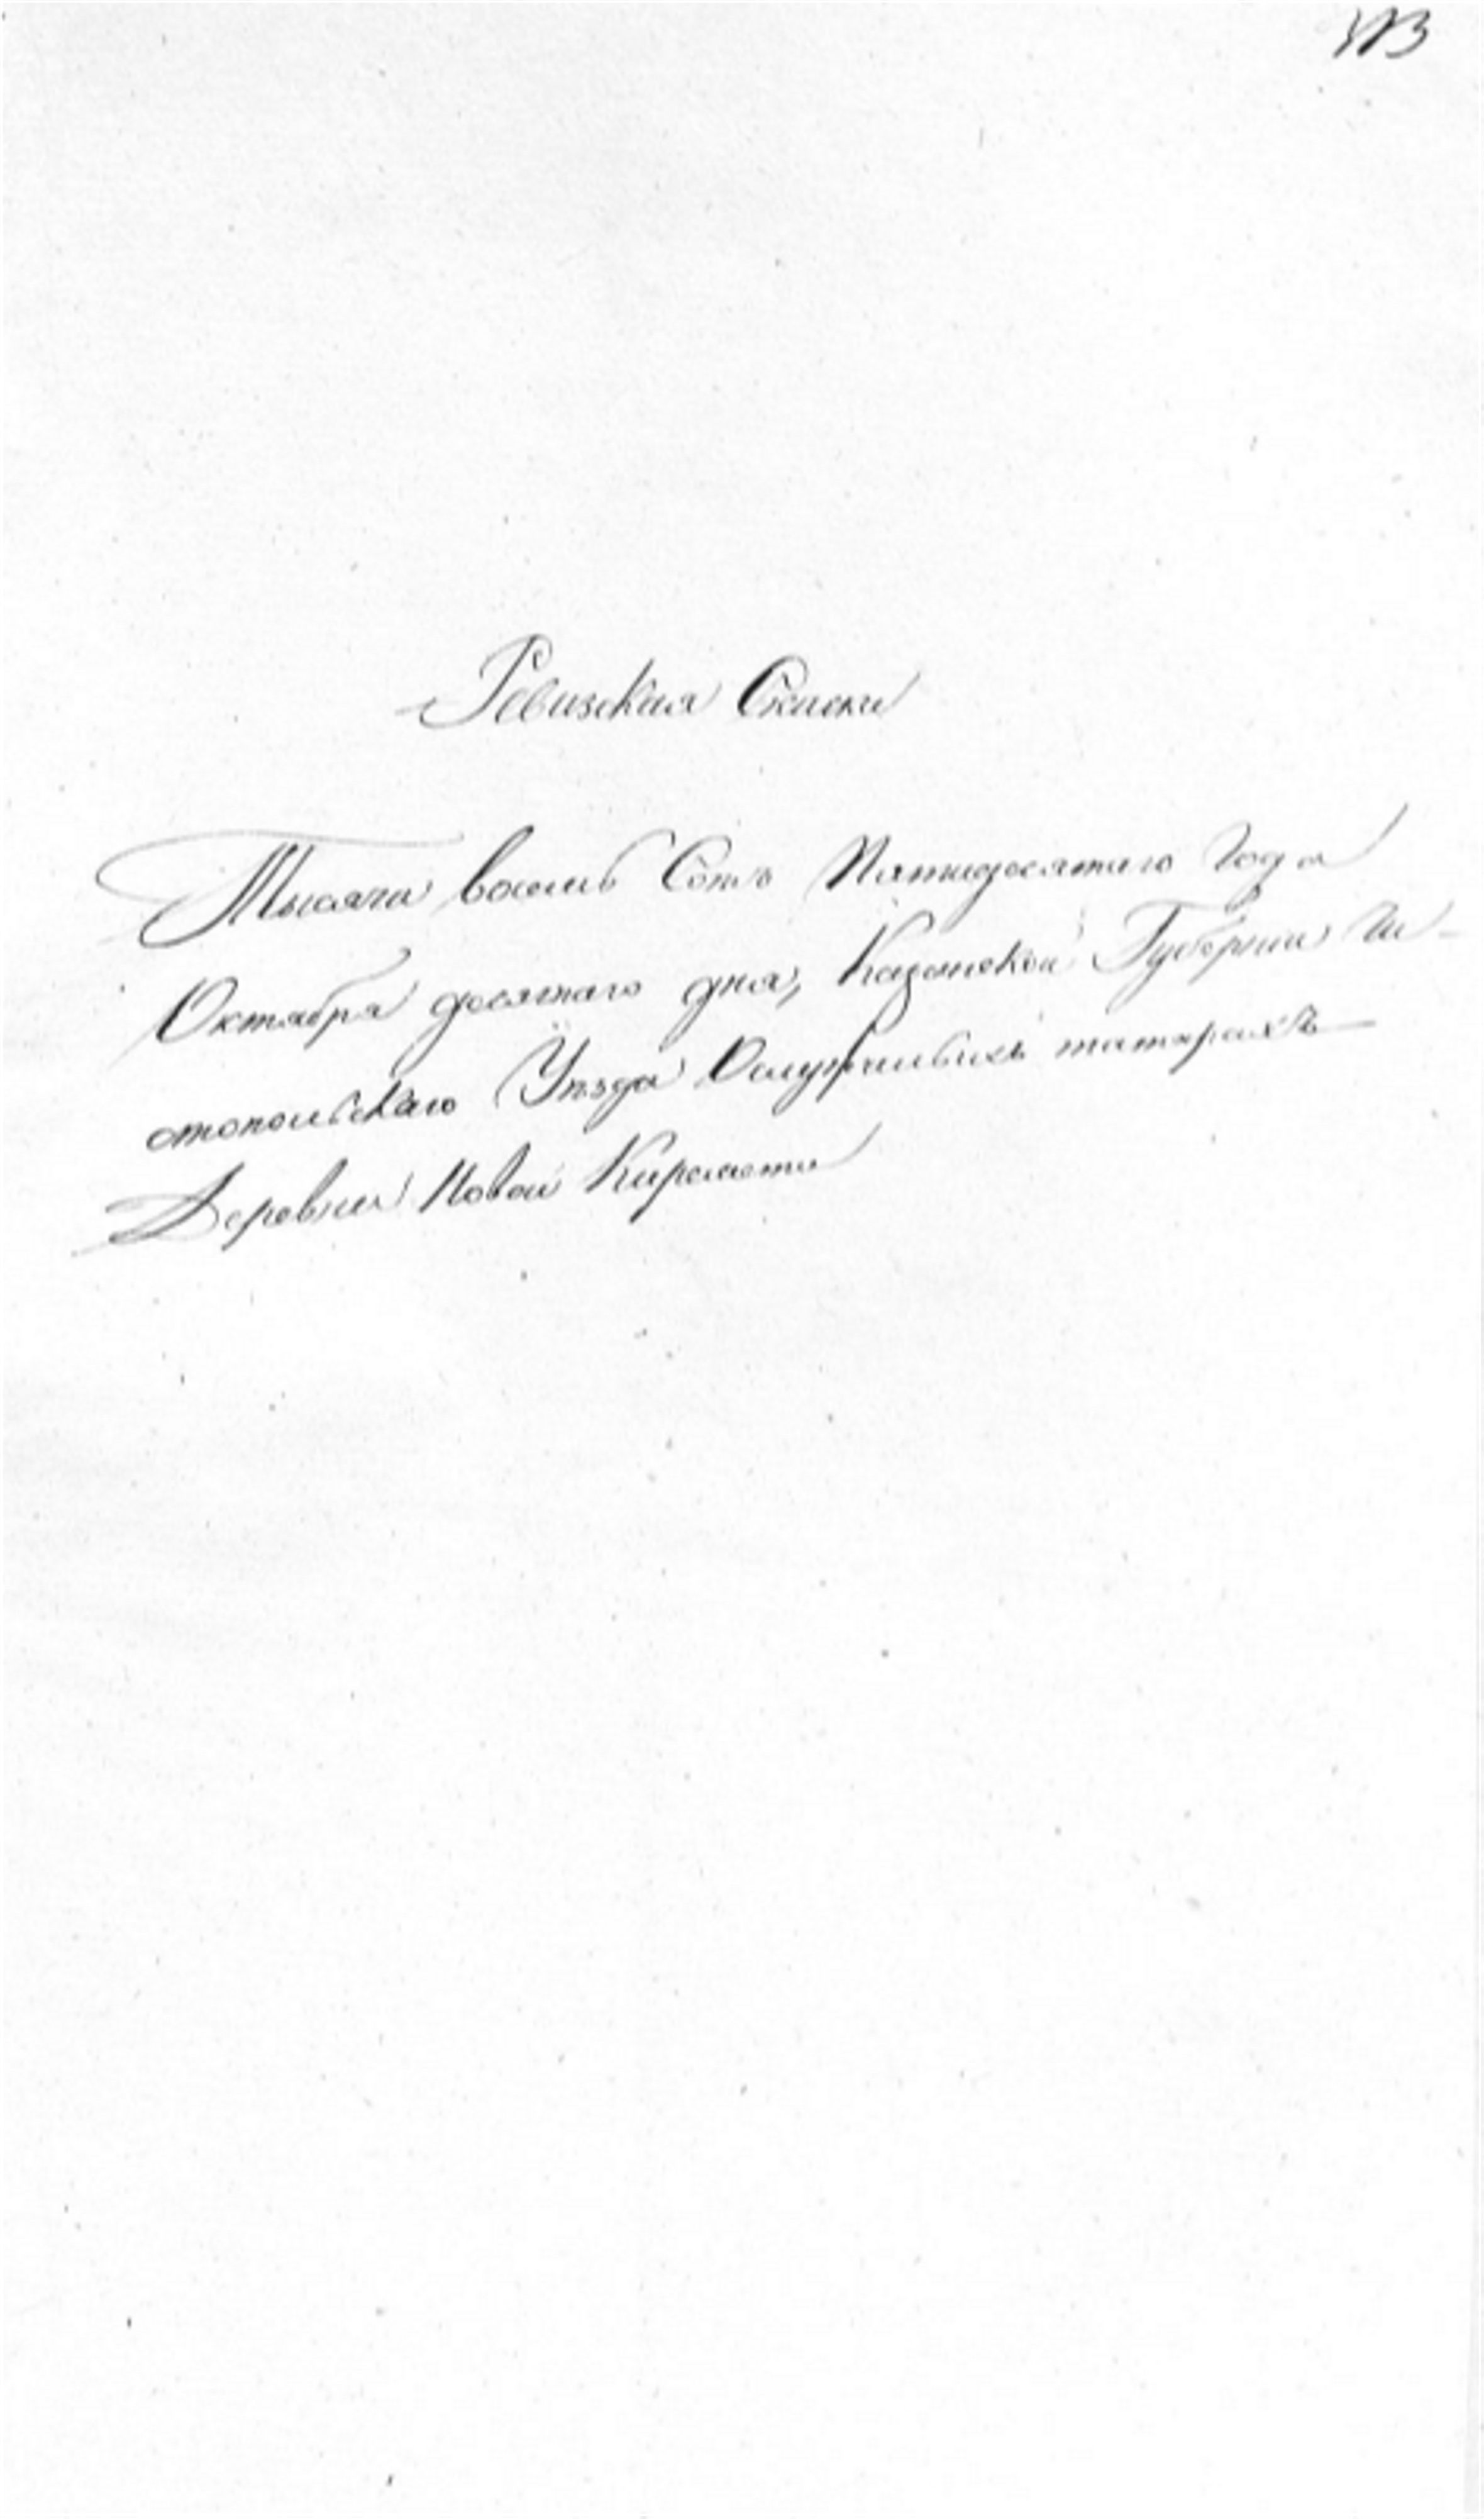 Ревизская Сказка
Тысяча восемь Сотъ Пятидесятаго Года
Октября десятаго дня, Казанской Губернии Чи-
стопольскаго Уѣзда Ослужилыхъ татарахъ
Деревни Новой Киремети